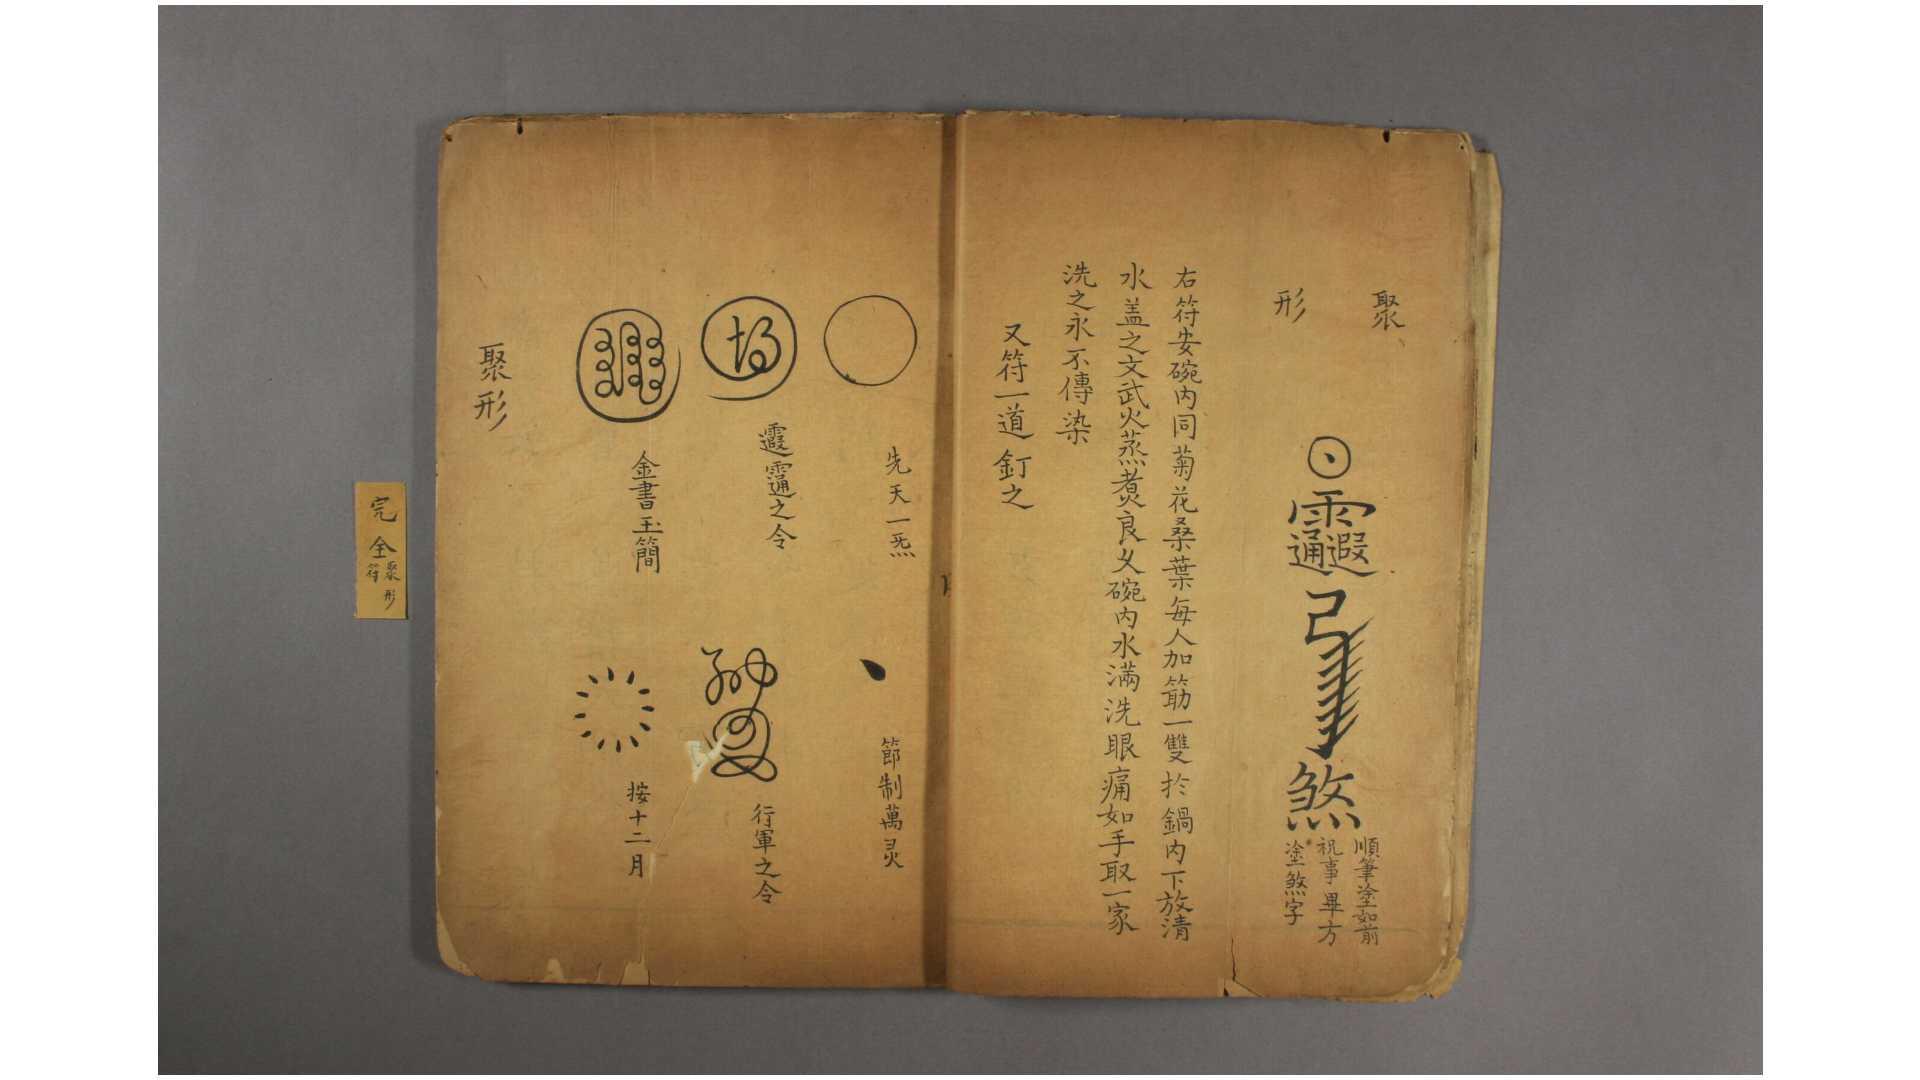 聚
形
煞
順筆塗如前
祝事畢方
塗煞字
右符安碗内同菊花桑葉每人加筯一雙於鍋内下放清
水盖之文武火蒸煮良乆碗内水满洗眼痛如手取一家
洗之永不傳染
又符一道釘之
先天一炁
節制萬灵
之令
行軍之令
金書玉簡
按十二月
聚形
完全
聚形
符